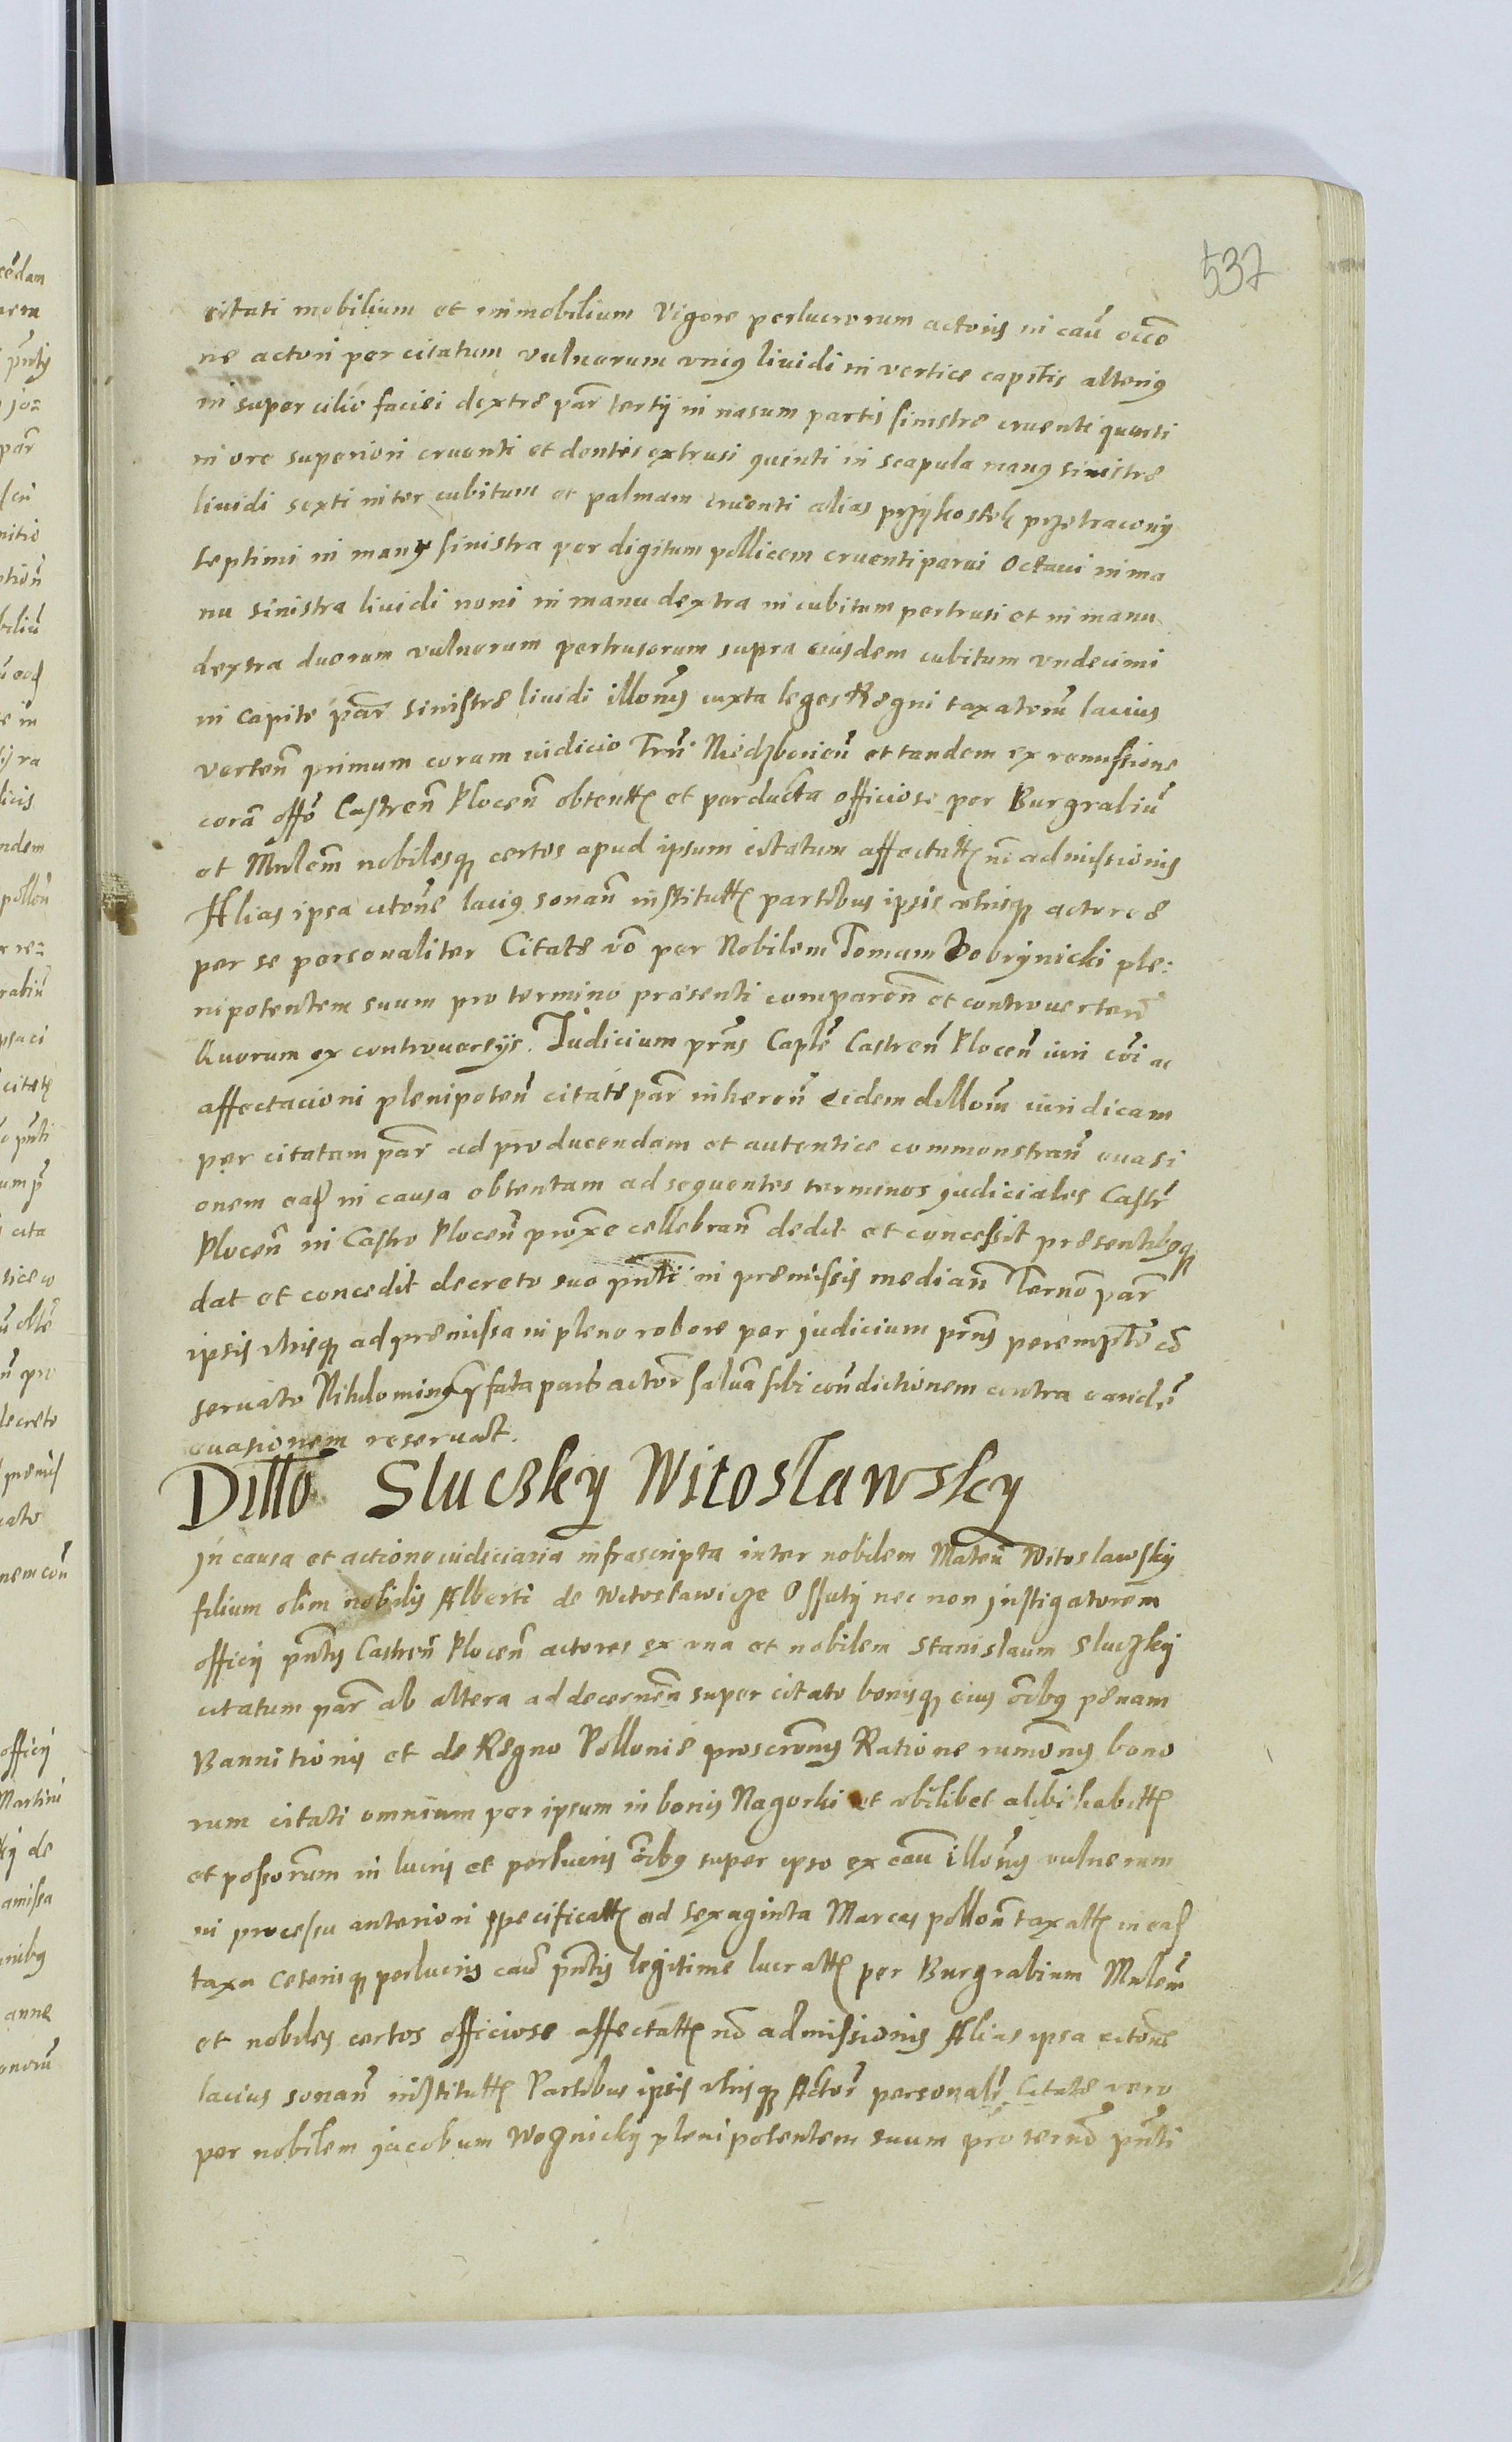 537
citati mobilium et immobilium Vigore perlucrorum actoris in cau͠ occ͠o
ne actori per citatum vulnerum vniꝰ liuidi in vertice capitis alteriꝰ
in super cilio faciei dextre par͠ tertij in nasum partis sinistre cruenti quarti
in ore superiori cruenti et dentis extrusi quinti in scapula manꝰ sinistre
liuidi sexti inter cubitum et palmam cruenti alias przykostek przetracony
septimi in manꝰ sinistra per digitum pollicem cruenti parui Octaui in ma
nu sinistra liuidi noni in manu dextra in cubitum pertrusi et in manu
dextra duorum vulnerum pertrusorum supra eiusdem cubitum vndecimi
in capite par͠ sinistre liuidi illor͠ iuxta leges Regni taxator͠ latius
verten͠ primum coram iudicio Tr͠ri Niedzborien͠ et tandem ex remissione
corã off͠o Castren͠ Plocen͠ obtentt et perducta officiose per Burgrabiu͠
et M͠rlem nobilesq certos apud ipsum citatum affectatt n͠o admissionis
Alias ipsa cito͠ne laciꝰ sonan͠ institutt partibus ipsis vtrisq actorea
per se personaliter Citate v͠o per Nobilem Tomam Dobrynicki ple:
nipotentem suum pro termino præsenti comparen͠ et controuerten͠
Quorum ex controuersijs. Judicium pr͠ns Cap͠le Castren͠ Plocen͠ iuri co͠i ac
affectacioni plenipoten͠ citate par͠ inheren͠ eidem dillo͠m iuridicam
per citatam par͠ ad producendam et autentice commonstran͠ euasi
onem ead in causa obtentam ad sequentes terminos judiciales Castr͠
Plocen͠ in Castro Plocen͠ prox͠e cellebran͠ dedit et concessit presentibꝰq
dat et concedit decreto suo pn͠ti in premissis median͠ Term͠o par͠
ipsis vtrisq ad premissa in pleno robore per judicium pr͠ns perempto͠ co͠
seruato Nihilominꝰ p͠fata pars actor͠ saluã sibi condictionem contra eande͠
euasionem reseruat.
Dillo Sluczky Witoslawsky
In causa et actione iudiciaria infrascripta inter nobilem Mateu͠ Witoslawsky
filium olim nobilis Alberti de Witosławicze Ossuty nec non jnstigatorem
officij pn͠tis Castren͠ Plocen͠ actores ex vna et nobilem Stanislaum Sluczky
citatum par͠ ab altera ad decernen͠ super citato bonisq eius o͠ibꝰ penam
Bannitionis et de Regno Pollonie proscr͠onis Ratione rumo͠nis bono
rum citati omnium per ipsum in bonis Nagorki et vbilibet alibi habitt
et possorum in lucris et perlucris o͠ibꝰ super ipso ex cau͠ illor͠ vulnerum
in processu anteriori specificatt ad sexaginta Marcas pollon͠ taxatt in ead
taxa Ceterisq perlucris cau͠ pn͠tis legitime lucratt per Burgrabium M͠rlem
et nobiles certos officiose affectatt n͠o admissionis Alias ipsa cito͠ne
lacius sonan͠ institutt Partibus ipsis vtrisq Actor͠ personal͠r Citate vero
per nobilem jacobum Wognicky plenipotentem suum pro term͠o pn͠ti